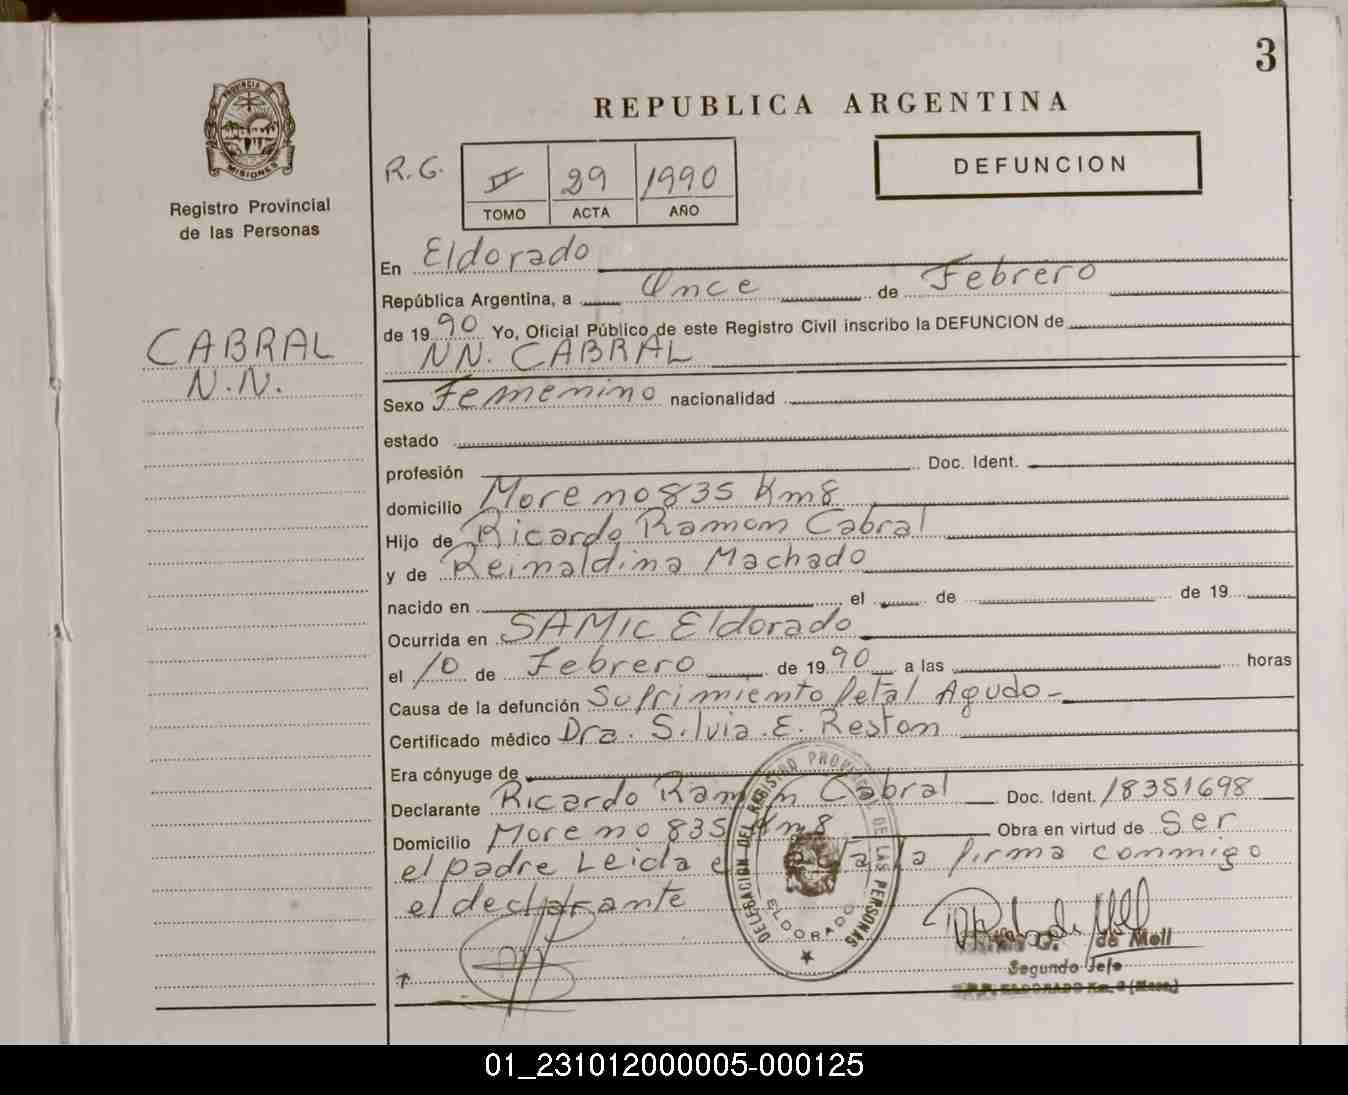 3
PROVINCIA DE
MISIONES
Registro Provincial
de las Personas
REPUBLICA ARGENTINA
R.G. II 29 1990
TOMO ACTA AÑO
DEFUNCION
En Eldorado
República Argentina, a Once de Febrero
de 1990 Yo, Oficial Público de este Registro Civil inscribo la DEFUNCION de
NN. CABRAL
CABRAL
N.N.
Sexo Femenino nacionalidad
estado
profesión Doc. Ident.
domicilio Moreno 835 Km 8
Hijo de Ricardo Ramon Cabral
y de Reinaldina Machado
nacido en el de de 19
Ocurrida en SAMIC Eldorado
el 10 de Febrero de 1990 a las horas
Causa de la defunción Sufrimiento fetal Agudo-
Certificado médico Dra. Silvia.E. Reston
Era cónyuge de
Declarante Ricardo Ramon Cabral Doc. Ident. 18351698
Domicilio Moreno 835 Km 8 Obra en virtud de Ser
el padre Leida el acta la firma conmigo
el declarante
DELEGACION DEL REGISTRO PROVINCIAL DE LAS PERSONAS
ELDORADO
de Moll
Segundo Jefe
01_231012000005-000125